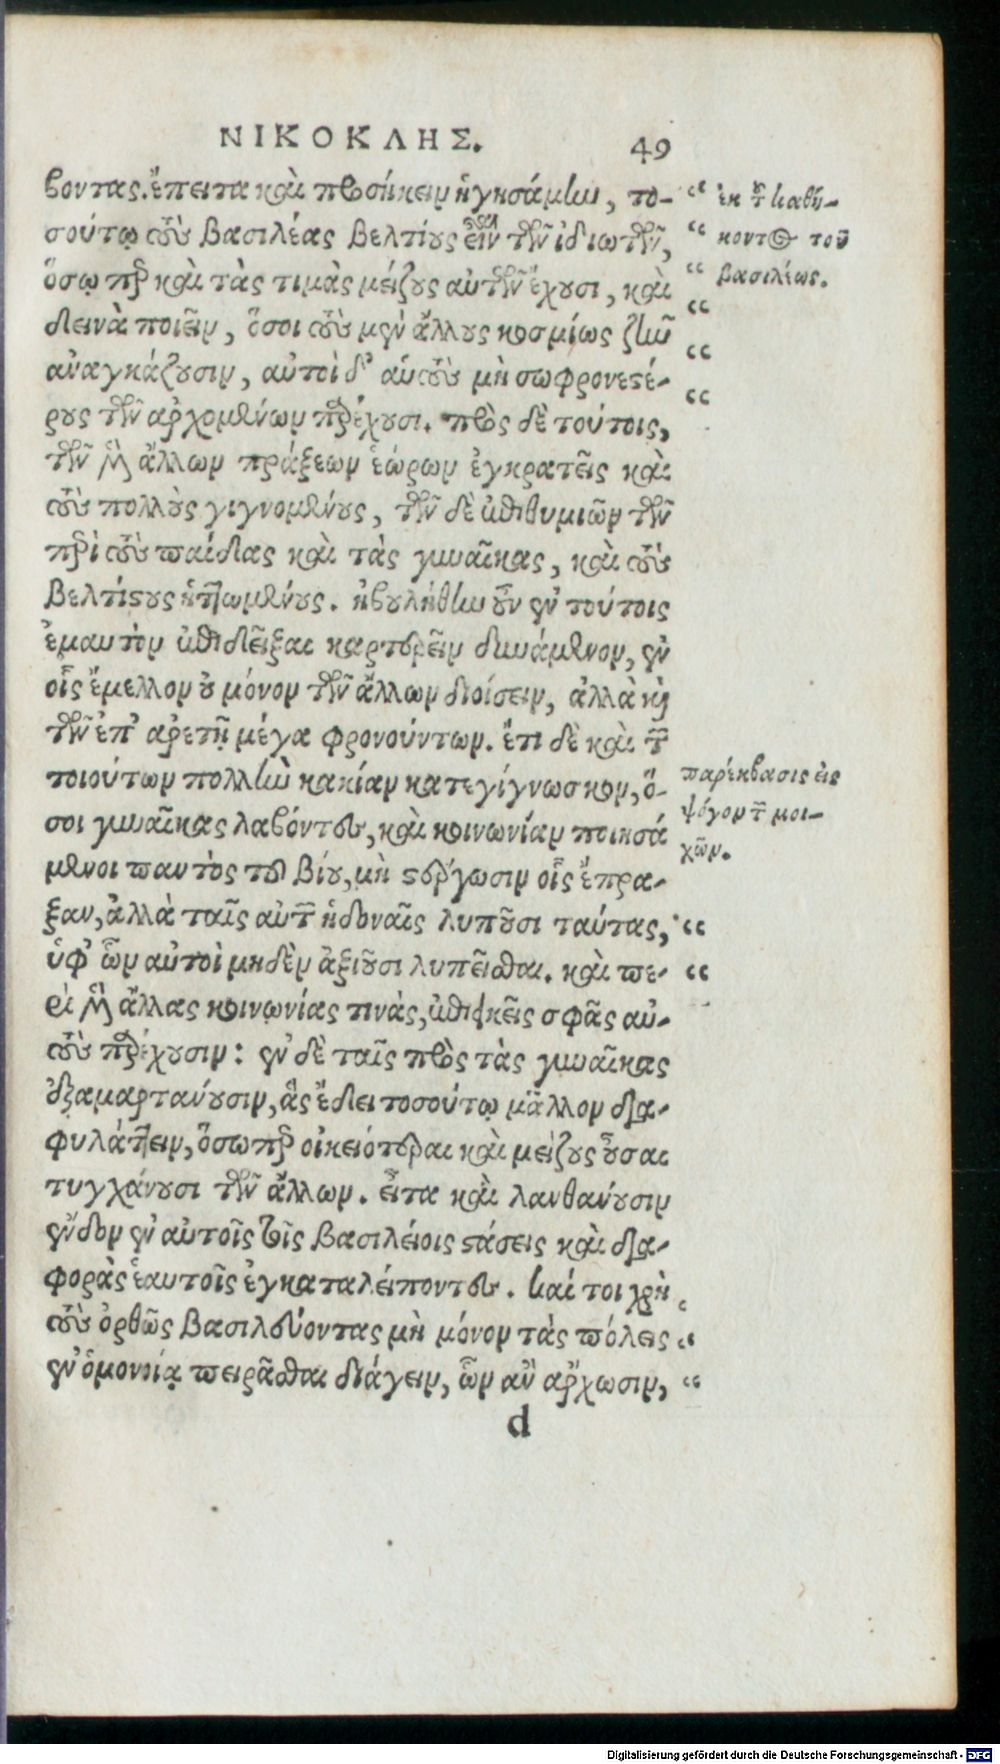 ΝΙΚΟΚΛΗΣ. 49
βοντας. ἔπειτα καὶ προσήκειν ἡγησάμην, το-
σούτῳ τοὺς βασιλέας βελτίους εἶναι τῶν ἰδιωτῶν,
ὅσῳ περ καὶ τὰς τιμὰς μείζους αὐτῶν ἔχουσι, καὶ
δεινὰ ποιεῖν, ὅσοι τοὺς μὲν ἄλλους κοσμίως ζῆν
ἀναγκάζουσιν, αὐτοὶ δ' αὑτοὺς μὴ σωφρονεστέ-
ρους τῶν ἀρχομένων παρέχουσι. πρὸς δὲ τούτοις,
τῶν μὲν ἄλλων πράξεων ἑώρων ἐγκρατεῖς καὶ
τοὺς πολλοὺς γιγνομένους, τῶν δὲ ἐπιθυμιῶν τῶν
περὶ τοὺς παῖδας καὶ τὰς γυναῖκας, καὶ τοὺς
βελτίστους ἡττωμένους. ἠβουλήθην οὖν ἐν τούτοις
ἐμαυτὸν ἐπιδεῖξαι καρτερεῖν δυνάμενον, ἐν
οἷς ἔμελλον οὐ μόνον τῶν ἄλλων διοίσειν, ἀλλὰ καὶ
τῶν ἐπ' ἀρετῇ μέγα φρονούντων. ἔτι δὲ καὶ τῶν
τοιούτων πολλὴν κακίαν κατεγίγνωσκον, ὅ-
σοι γυναῖκας λαβόντες, καὶ κοινωνίαν ποιησά
μενοι παντὸς τοῦ βίου, μὴ στέργωσιν οἷς ἔπρα-
ξαν, ἀλλὰ ταῖς αὑτῶν ἡδοναῖς λυποῦσι ταύτας,
ὑφ' ὧν αὐτοὶ μηδὲν ἀξιοῦσι λυπεῖσθαι. καὶ πε-
ρὶ μὲν ἄλλας κοινωνίας τινὰς, ἐπιεικεῖς σφᾶς αὐ-
τοὺς παρέχουσιν: ἐν δὲ ταῖς πρὸς τὰς γυναῖκας
ἐξαμαρτάνουσιν, ἃς ἔδει τοσούτῳ μᾶλλον δια-
φυλάττειν, ὅσωπερ οἰκειότεραι καὶ μείζους οὖσαι
τυγχάνουσι τῶν ἄλλων. εἶτα καὶ λανθάνουσιν
ἔνδον ἐν αὐτοῖς τοῖς βασιλείοις στάσεις καὶ δια-
φορὰς ἑαυτοῖς ἐγκαταλείποντες. καί τοι χρὴ
τοὺς ὀρθῶς βασιλεύοντας μὴ μόνον τὰς πόλεις
ἐν ὁμονοίᾳ πειρᾶσθαι διάγειν, ὧν ἂν ἄρχωσιν,
d
ἐκ τοῦ καθή-
κοντος τοῦ
βασιλέως.
παρέκβασις εἰς
ψόγον τῶν μοι-
χῶν.
Digitalisierung gefördert durch die Deutsche Forschungsgemeinschaft - DFG